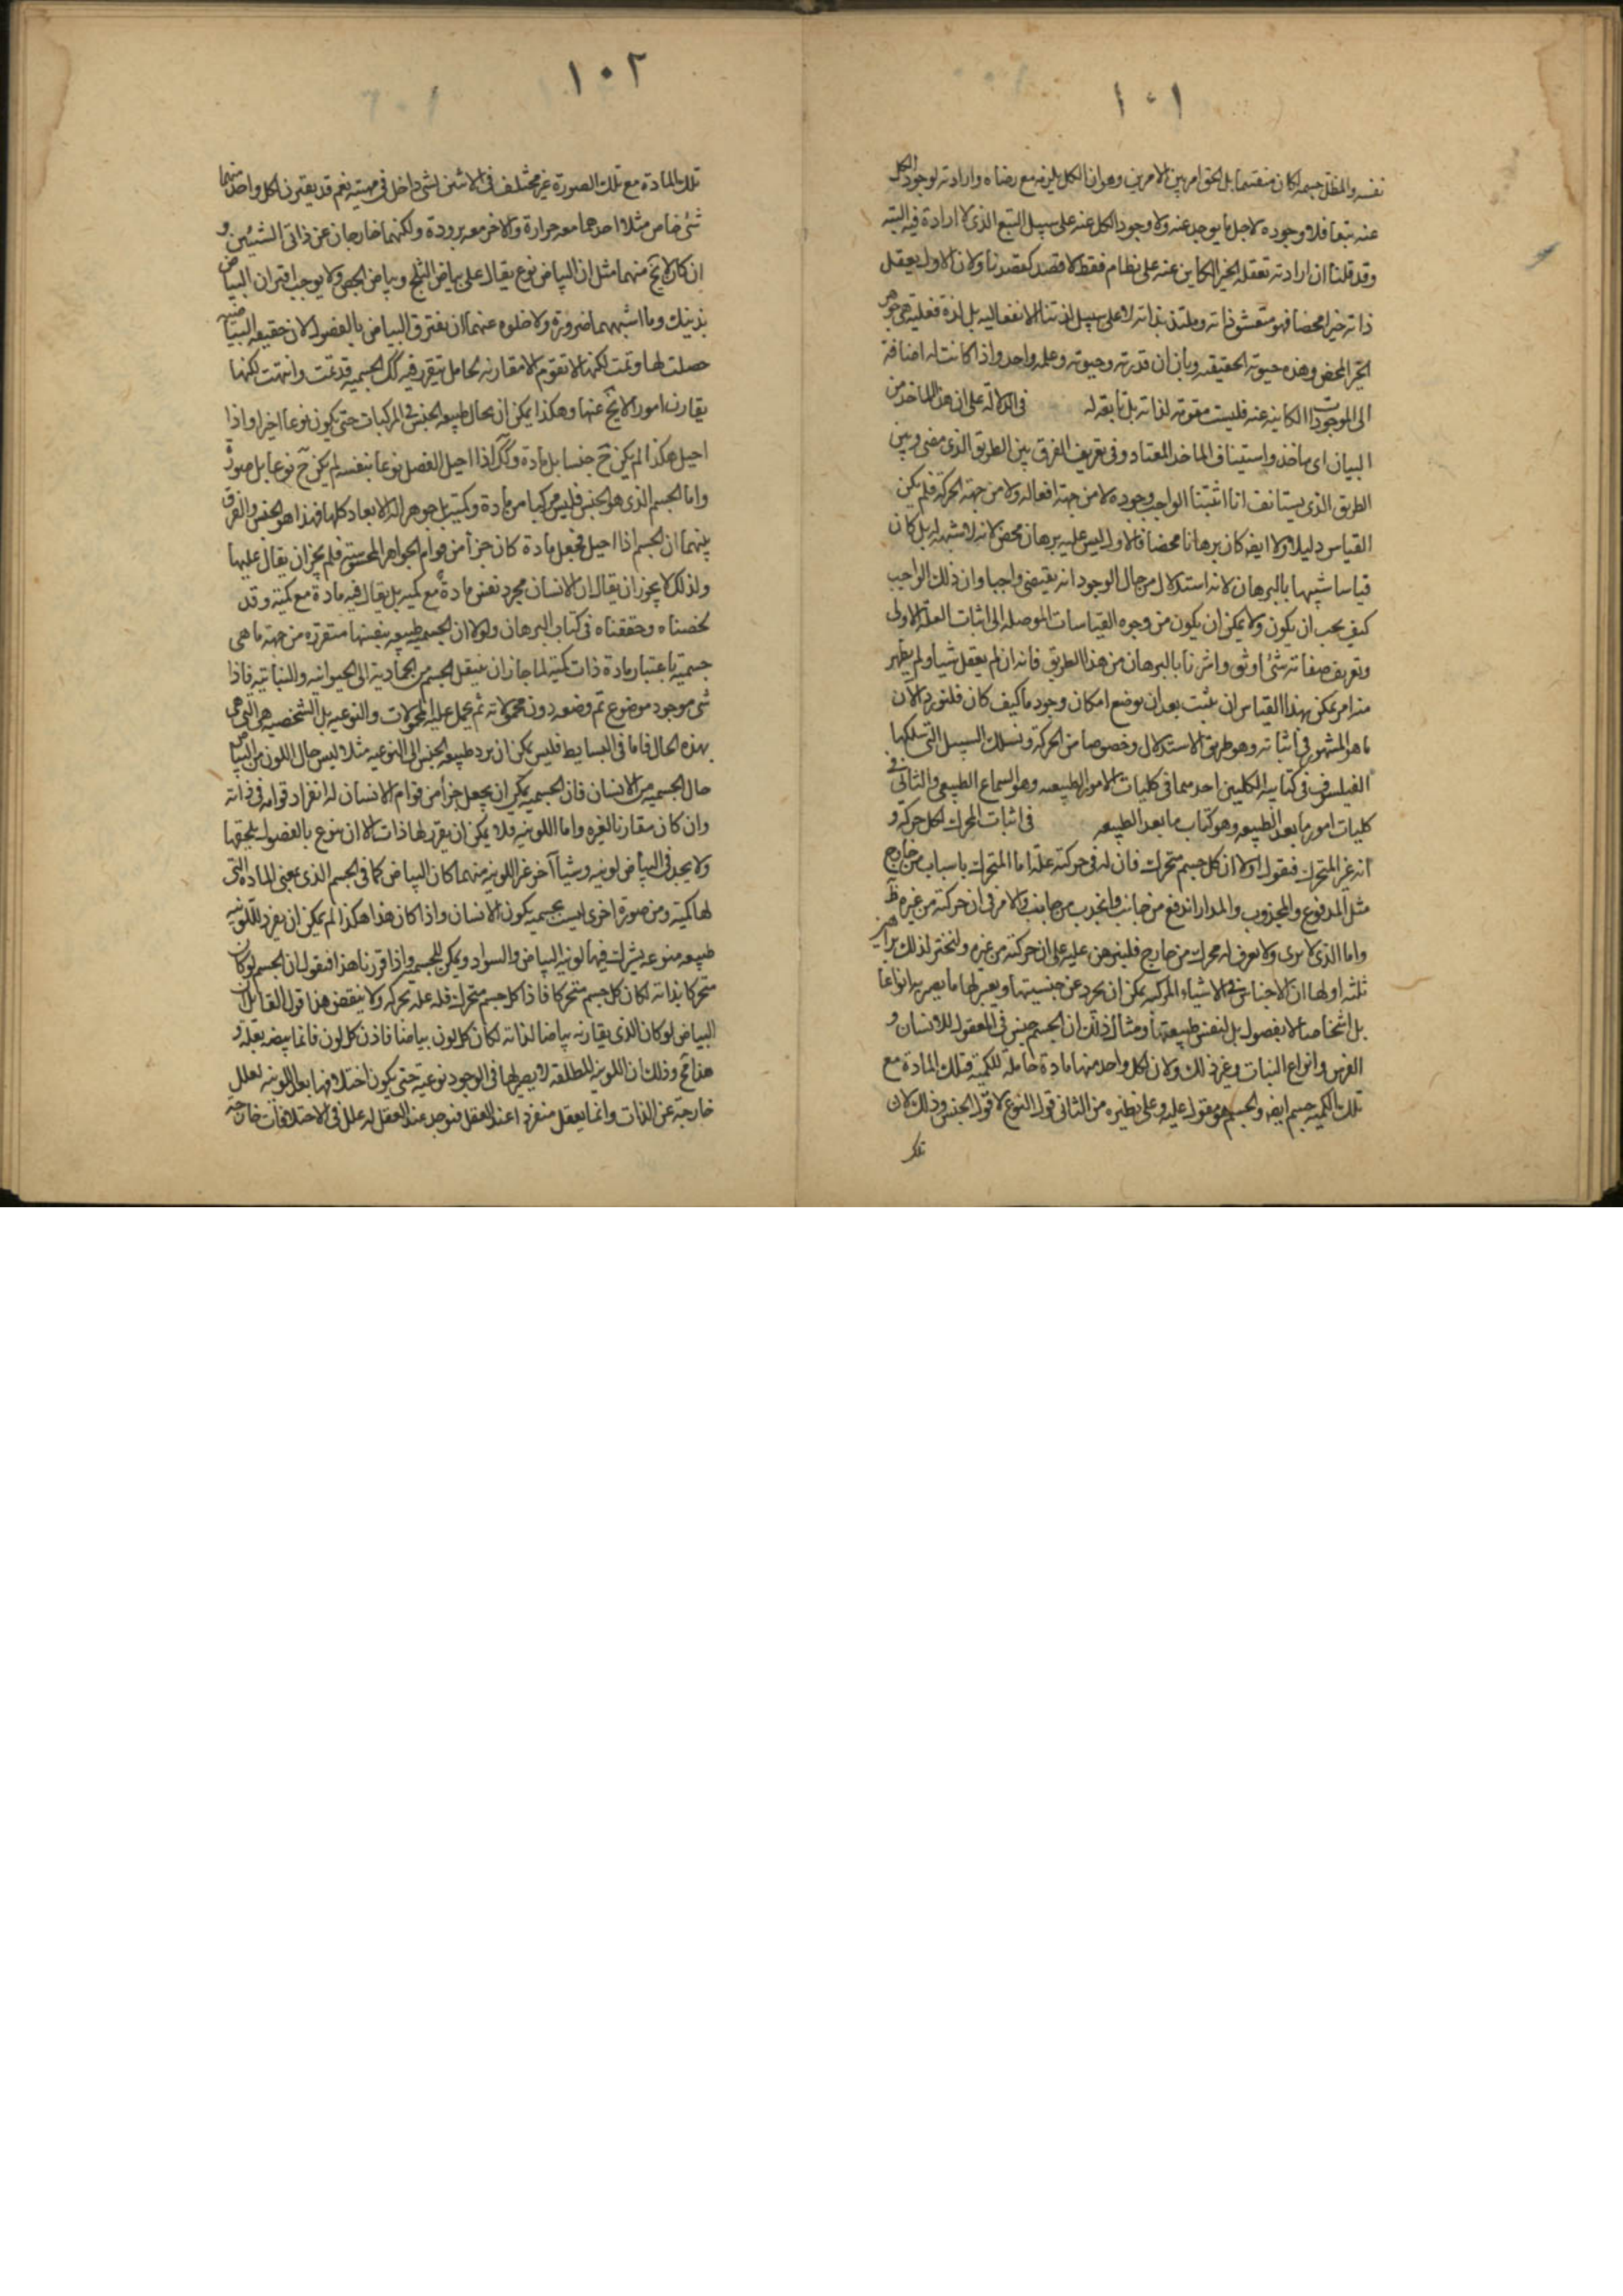 ١٠١
نفسه والمظل جسمه لكان منقسما بل الحق امر بين الامرين وهو ان الكل يلزمه مع رضاه وارادته لوجود الكل
عنه تبعا فلا وجوده لاجل ما يوجد عنه ولا وجود الكل عنه على سبيل التبع الذى لا ارادة فيه البته
وقد قلنا ان ارادته تعقله الخير الكاين عنه على نظام فقط لا قصد كقصدنا ولان الاول يعقل
ذاته خيرا محضا فهو متعشق ذاته وملتذ بذاته لا على سبيل لذتنا الانفعاليه بل لذة فعلية هى جوهر
الخير المحض وهذه حيوته الحقيقيه وبان ان قدرته وحيوته وعلمه واحد واذا كانت له اضافة
الى الموجودات الكاينه عنه فليست مقومة لذاته بل تابعة له فى الدلالة على ان هذا الماخذ من
البيان اى ماخذ واستيناف الماخذ المعتاد وفى تعريف الفرق بين الطريق الذى مضى وبين
الطريق الذى يستانف انا اثبتنا الواجب وجوده لا من جهة افعاله ولا من جهة الحركة فلم يكن
القياس دليلا ولا ايضه كان برهانا محضا فالاول ليس عليه برهان محض لانه لا شبه له بل كان
قياسا شبيها بالبرهان لانه استدلال من حال الوجود انه يقتضى واجبا وان ذلك الواجب
كيف يجب ان يكون ولا يمكن ان يكون من وجوه القياسات الموصله الى اثبات العلة الاولى
وتعريف صفاته شئ اوثق واشرنا بالبرهان من هذا الطريق فانه ان لم يعقل شيا ولم يظهر
منه امر يمكن بهذا القياس ان يثبت بعد ان يوضع امكان وجود ما كيف كان فلنورد الآن
ما هو المشهور فى اثباته وهو طريق الاستدلال وخصوصا من الحركة ونسلك السبيل التى سلكها
الفيلسوف فى كتابيه الكليين احدهما فى كليات الامور الطبيعيه وهو السماع الطبيعى والثانى فى
كليات امور ما بعد الطبيعه وهو كتاب ما بعد الطبيعه فى اثبات المحرك لكل حركة و
انه غير المتحرك فنقول اولا ان كل جسم متحرك فان له فى حركته علة اما المتحرك باسباب من خارج
مثل المدفوع والمجذوب والمدار اندفع من جانب وانجذب من جانب فالامر فى ان حركته من غيره ظ
واما الذى لا يرى ولا يعرف له محرك من خارج فلنبرهن عليه على ان حركته من غيره ولنختر لذلك براهين
ثلثه اولها ان الاجناس فى الاشياء المركبه يمكن ان يجرد عن جنسيتها ويعبر لها ما يصير به انواعا
بل اشخاصا لا بفصول بل لنفس طبيعتها ومثال ذلك ان الجسم جنس فى المعقول للانسان و
الفرس وانواع النبات وغير ذلك ولان لكل واحد منها مادة حاملة للكمية فتلك المادة مع
تلك الكميه جسم ايضه والجسم هو مقول عليه وعلى نظيره من الثانى قول النوع لا قول الجنس وذلك لان
تلك
١٠٢
تلك المادة مع تلك الصورة غير مختلف فى الاثنين لشئ داخل فى مهيته نعم قد يقترن لكل واحد منهما
شئ خاص مثلا احدهما معه حرارة والاخر معه برودة ولكنهما خارجان عن ذاتى الشيئين و
ان كان لا يخ منهما مثل ان البياض نوع يقال على بياض الثلج وبياض الجص ولا يوجب اقتران البياض
بذينك وما اشبههما ضرورة ولا خلوه عنهما ان يفترق البياض بالفصول لان حقيقه البياضيه
حصلت لها وتمت لكنها لا تقوم الا مقارنه لحامل يتقرر فيه كك الجسميه قد تمت وانتهت لكنها
يقارن امورا لا يخ عنها وهكذا يمكن ان يحال طبيعه الجنس فى المركبات حتى يكون نوعا اخيرا واذا
احيل هكذا لم يكن ح جنسا بل مادة وكك اذا احيل الفصل نوعا بنفسه لم يكن ح نوعا بل صورة
واما الجسم الذى هو الجنس فليس مركبا من مادة وكمية بل جوهر له الابعاد كلها فهذا هو الجنس والفرق
بينهما ان الجسم اذا احيل فجعل مادة كان جزأ من قوام الجواهر المحسوسة فلم يجز ان يقال عليها
ولذلك لا يجوز ان يقال ان الانسان مجرد نفس مادة مع كميه بل يقال فيه مادة مع كميته وقد
لخصناه وحققناه فى كتاب البرهان ولولا ان الجسميه طبيعه بنفسها متقررة من جهة ما هى
جسميه باعتبار مادة ذات كمية لما جاز ان ينتقل الجسم من الجمادية الى الحيوانيه والنباتيه فاذا
شئ موجود موضوع تم وضعه دون محمولاته ثم يحمل عليه المحمولات والنوعيه بل الشخصيه هى التى هى
بهذه الحال فاما فى البسايط فليس يمكن ان يرد طبيعه الجنس الى النوعيه مثلا ليس حال اللون من البياض
حال الجسميه من الانسان فان الجسميه يمكن ان يجعل جزأ من قوام الانسان له انفراد قوامه فى ذاته
وان كان مقارنا لغيره واما اللونيه فلا يمكن ان يقرر لها ذات الا ان ينوع بالفصول يلحقها
ولا يجد فى البياض لونيه وشيأ آخر غير اللونيه منهما كان البياض كما فى الجسم الذى بمعنى الماده التى
لها كمية ومن صورة اخرى ليست بجسميه يكون الانسان واذا كان هذا هكذا لم يمكن ان يفرد للّونيه
طبيعه منوعه يشترك فيها لونيه البياض والسواد ويمكن للجسميه واذا قررنا هذا فنقول ان الجسم لو كان
متحركا بذاته لكان كل جسم متحركا فاذا كل جسم متحرك فله علة تحركه ولا ينقض هذا قول القايل ان
البياض لو كان الذى يقارنه بياضا لذاته لكان كل لون بياضا فاذن كل لون فانما يبيضه بعلة و
هذا مح وذلك ان اللونيه المطلقه لا يصير لها فى الوجود نوعية حتى يكون اختلافها بعد اللونيه لعلل
خارجة عن الذات وانما يعقل منفردا عند العقل فتوجد عند العقل له علل فى الاختلافات خارجة